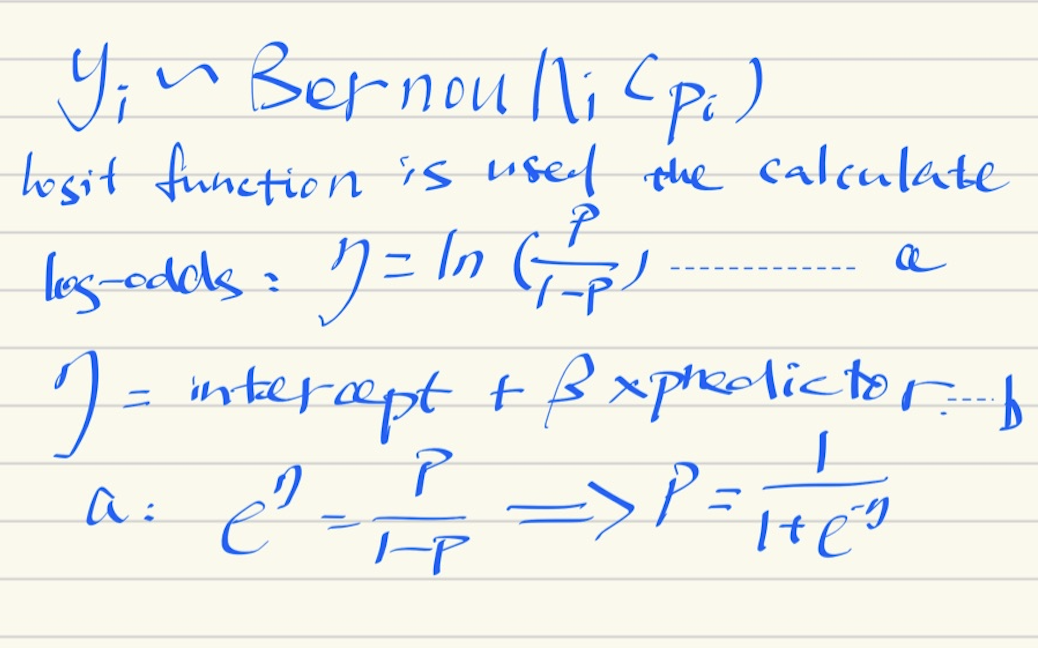 yᵢ ~ Bernoulli (pᵢ)
logit function is used the calculate
log-odds: η = ln (P/(1-P)) ------------- a
η = intercept + β × predictor ---- b
a: e^η = P/(1-P) => P = 1/(1+e^-η)